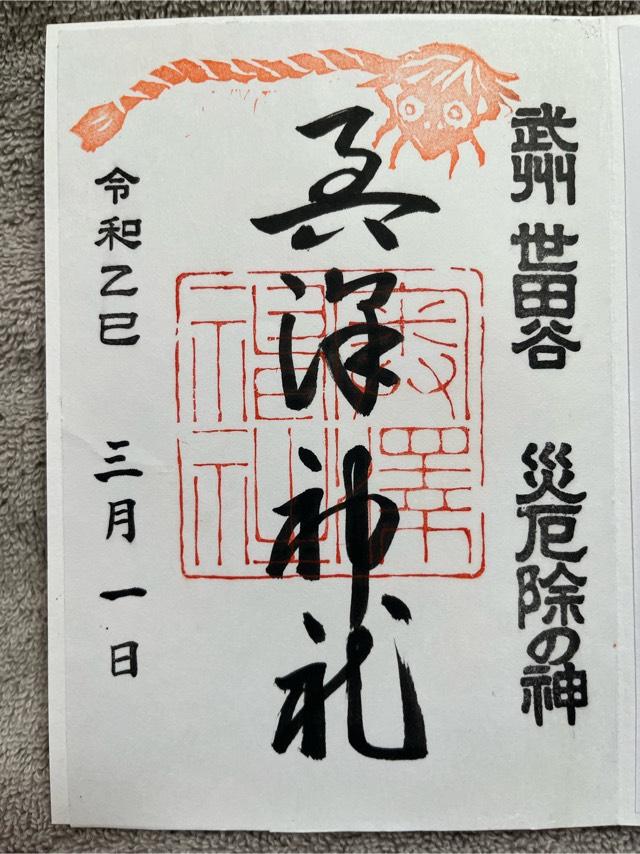 武州 世田谷 災厄除の神
奥澤神社
奥澤
神社
令和乙巳 三月一日